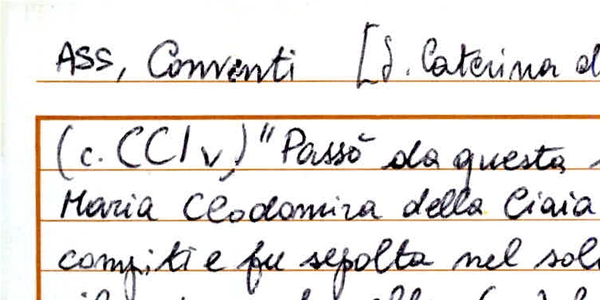 ASS, Conventi [S. Caterina d
(c. CCI v) "Passò da questa
Maria Clodomira della Ciaia
compiti e fu sepolta nel sol